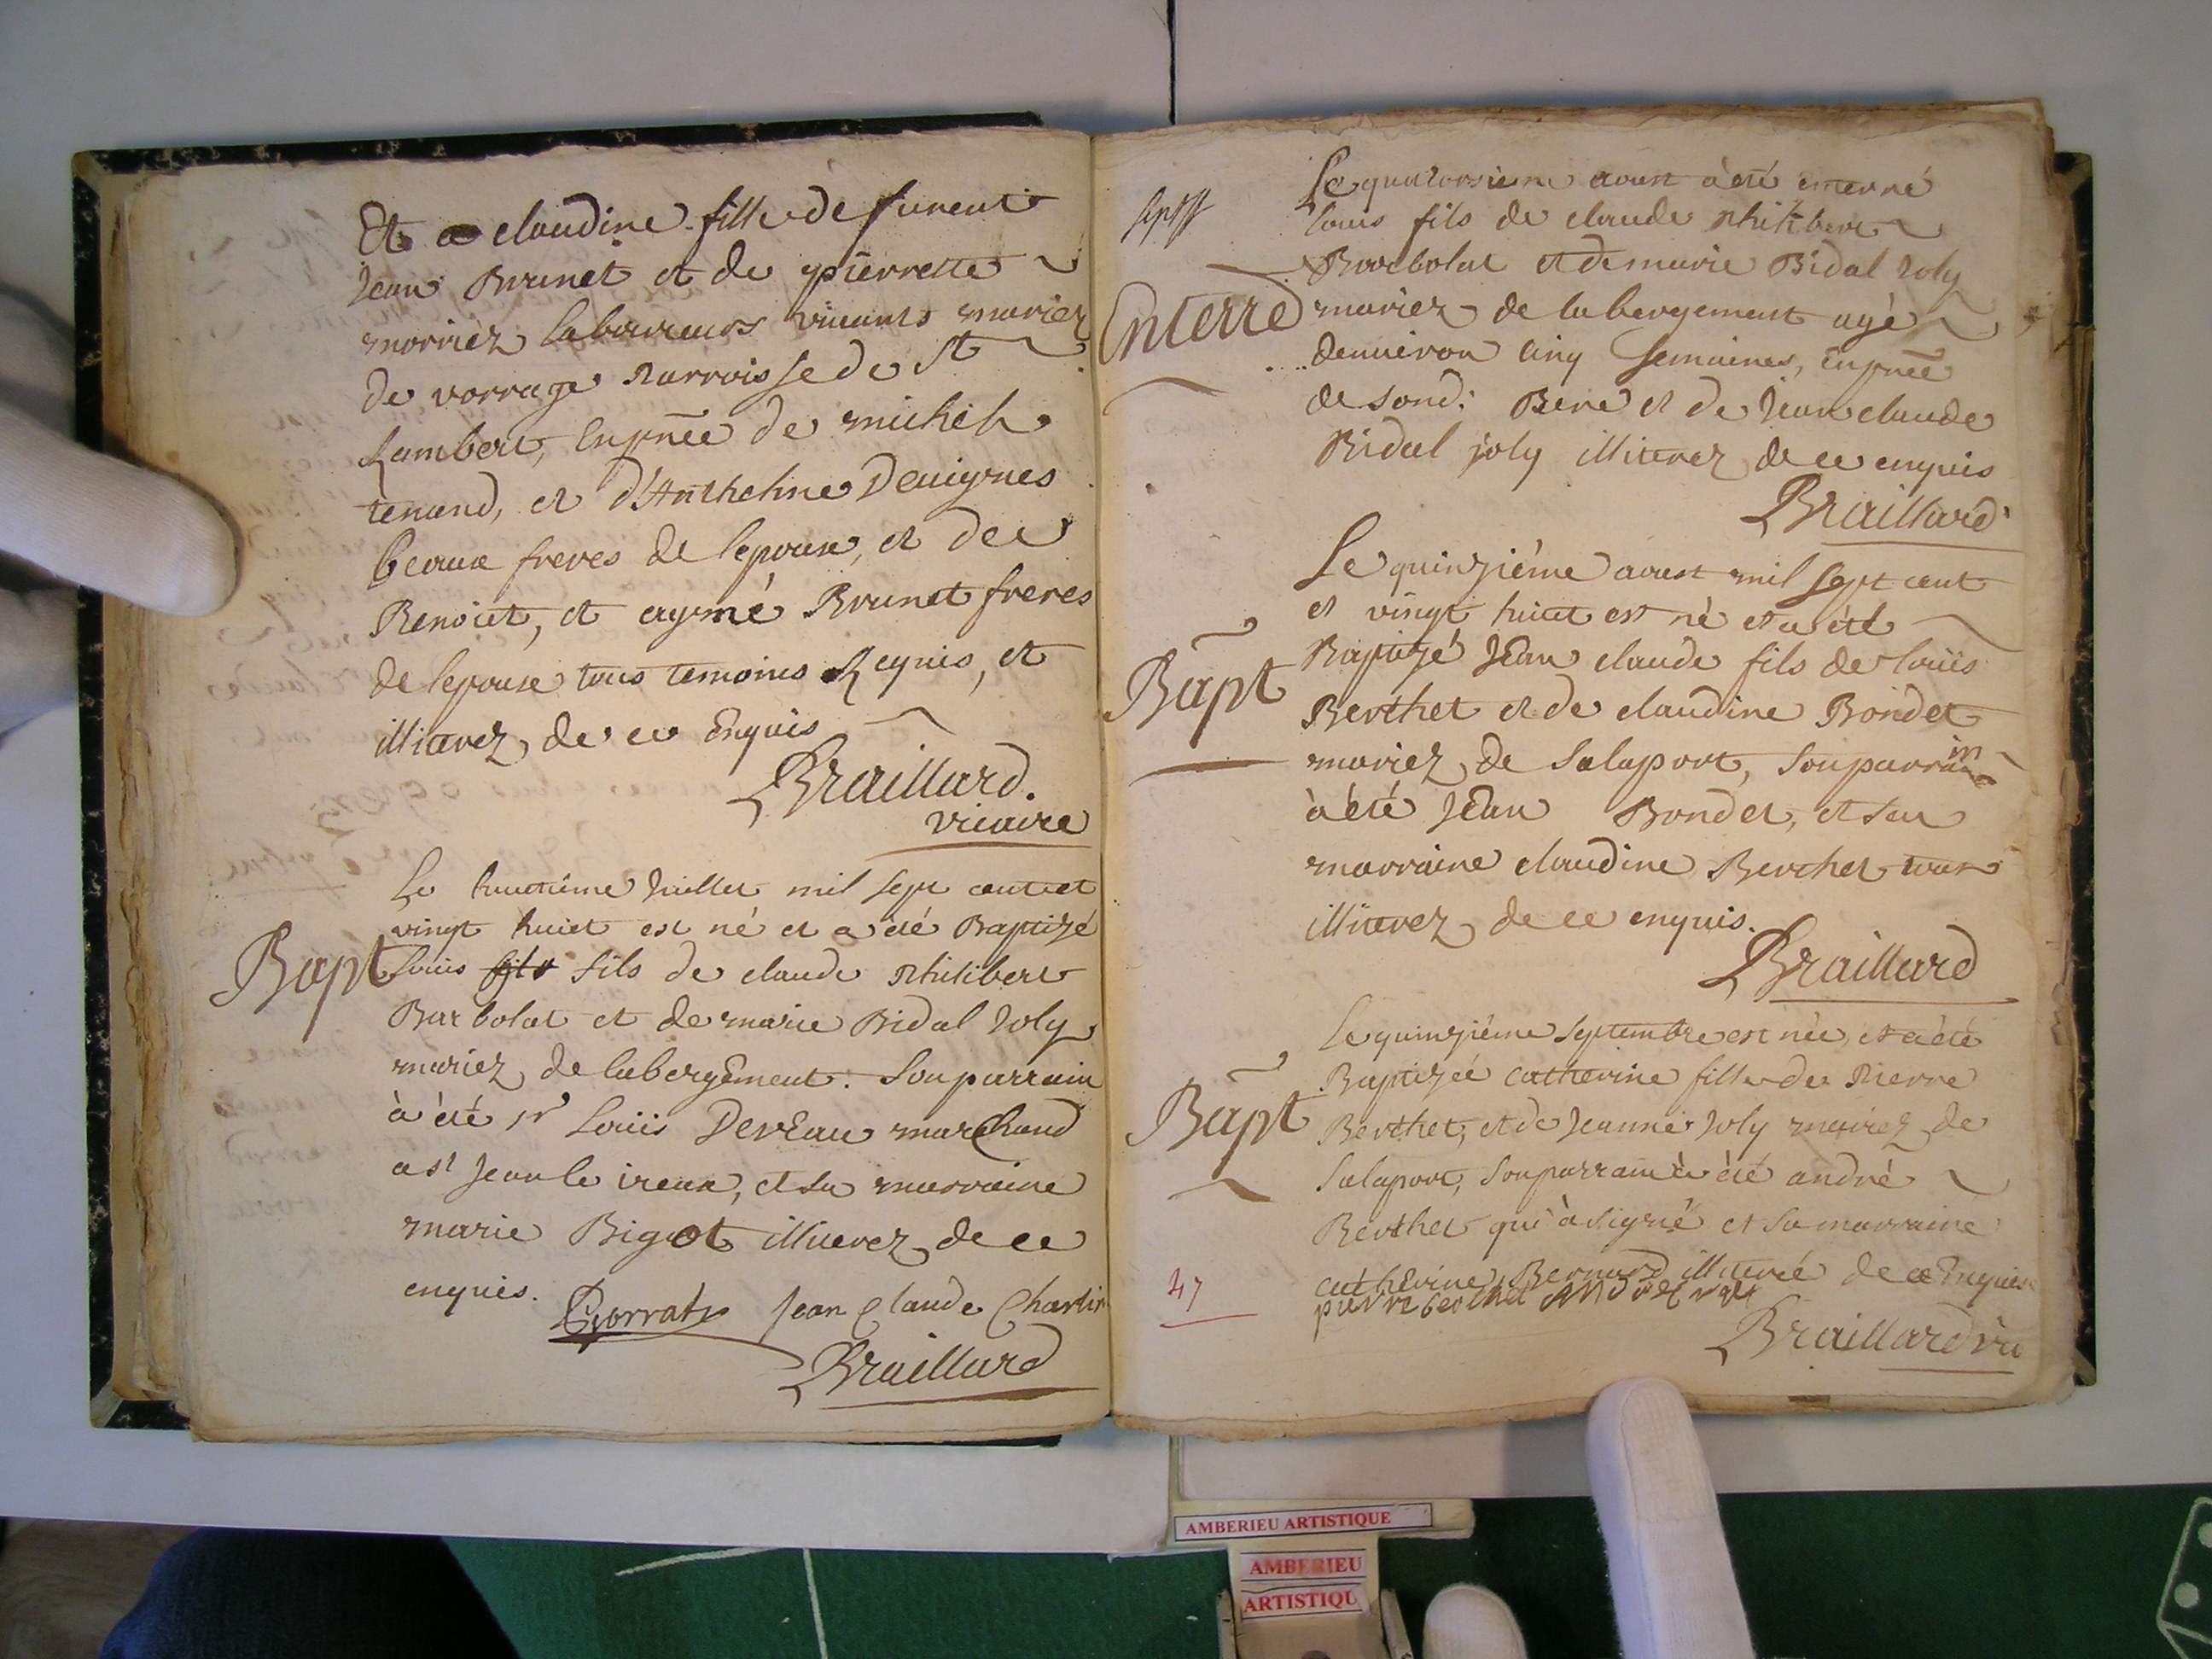 Et a claudine fille de furent
Jean Brunet et de pierrette
morriez laboureurs vivants mariez
de vorrage Parroisse de St
Lambert, Enpnce de michel
tenand, et d'Anthelme Deuignes
beaux freres de lepoux, et de
Benoiet, et aymé Brunet freres
de lepouse tous temoins Reqnis, et
illiterez de ce Enquis
Braillard.
vicaire
Bapt
Le huictiéme Juillet mil sept cent et
vingt huict est né et a été Baptizé
Louis fils fils de claude Philibert
Barbolat et de marie Bidal Joly
mariez de labergement. Son parrain
à été sr Loüis DevEau marchand
a st Jean le vieux, et sa marraine
marie Bigot illiterez de ce
enquis.
Jean Claude Charlin
Braillard
Le quatorsieme aoust à été enterré
Enterré
louis fils de claude philibert
Barbolat et de marie Bidal Joly
mariez de labergement agé
denuiron cinq semaines, Enpnce
de sond: Pere et de Jean claude
Bidal joly illiterez de ce enquis
Braillard
Bapt
Le quinziéme aoust mil sept cent
et vingt huict est né et a été
Baptizé JEan claude fils de loüis
Berthet et de claudine Bondet
mariez de Salaport, son parrain
à été JEan Bondet, et sa
marraine claudine Berthet tous
illiterez de ce enquis.
Braillard
Bapt
Le quinziéme septembre est née, et a été
Baptizée catherine fille de Pierre
Berthet, et de Jeanne Joly mariez de
Salaport, son parrain à été andré
Berthet qui à signé et sa marraine
catherine Bernard illiterée de ce Enquise
pierre berthet
47
Braillard vic
AMBERIEU ARTISTIQUE
AMBERIEU
ARTISTIQU